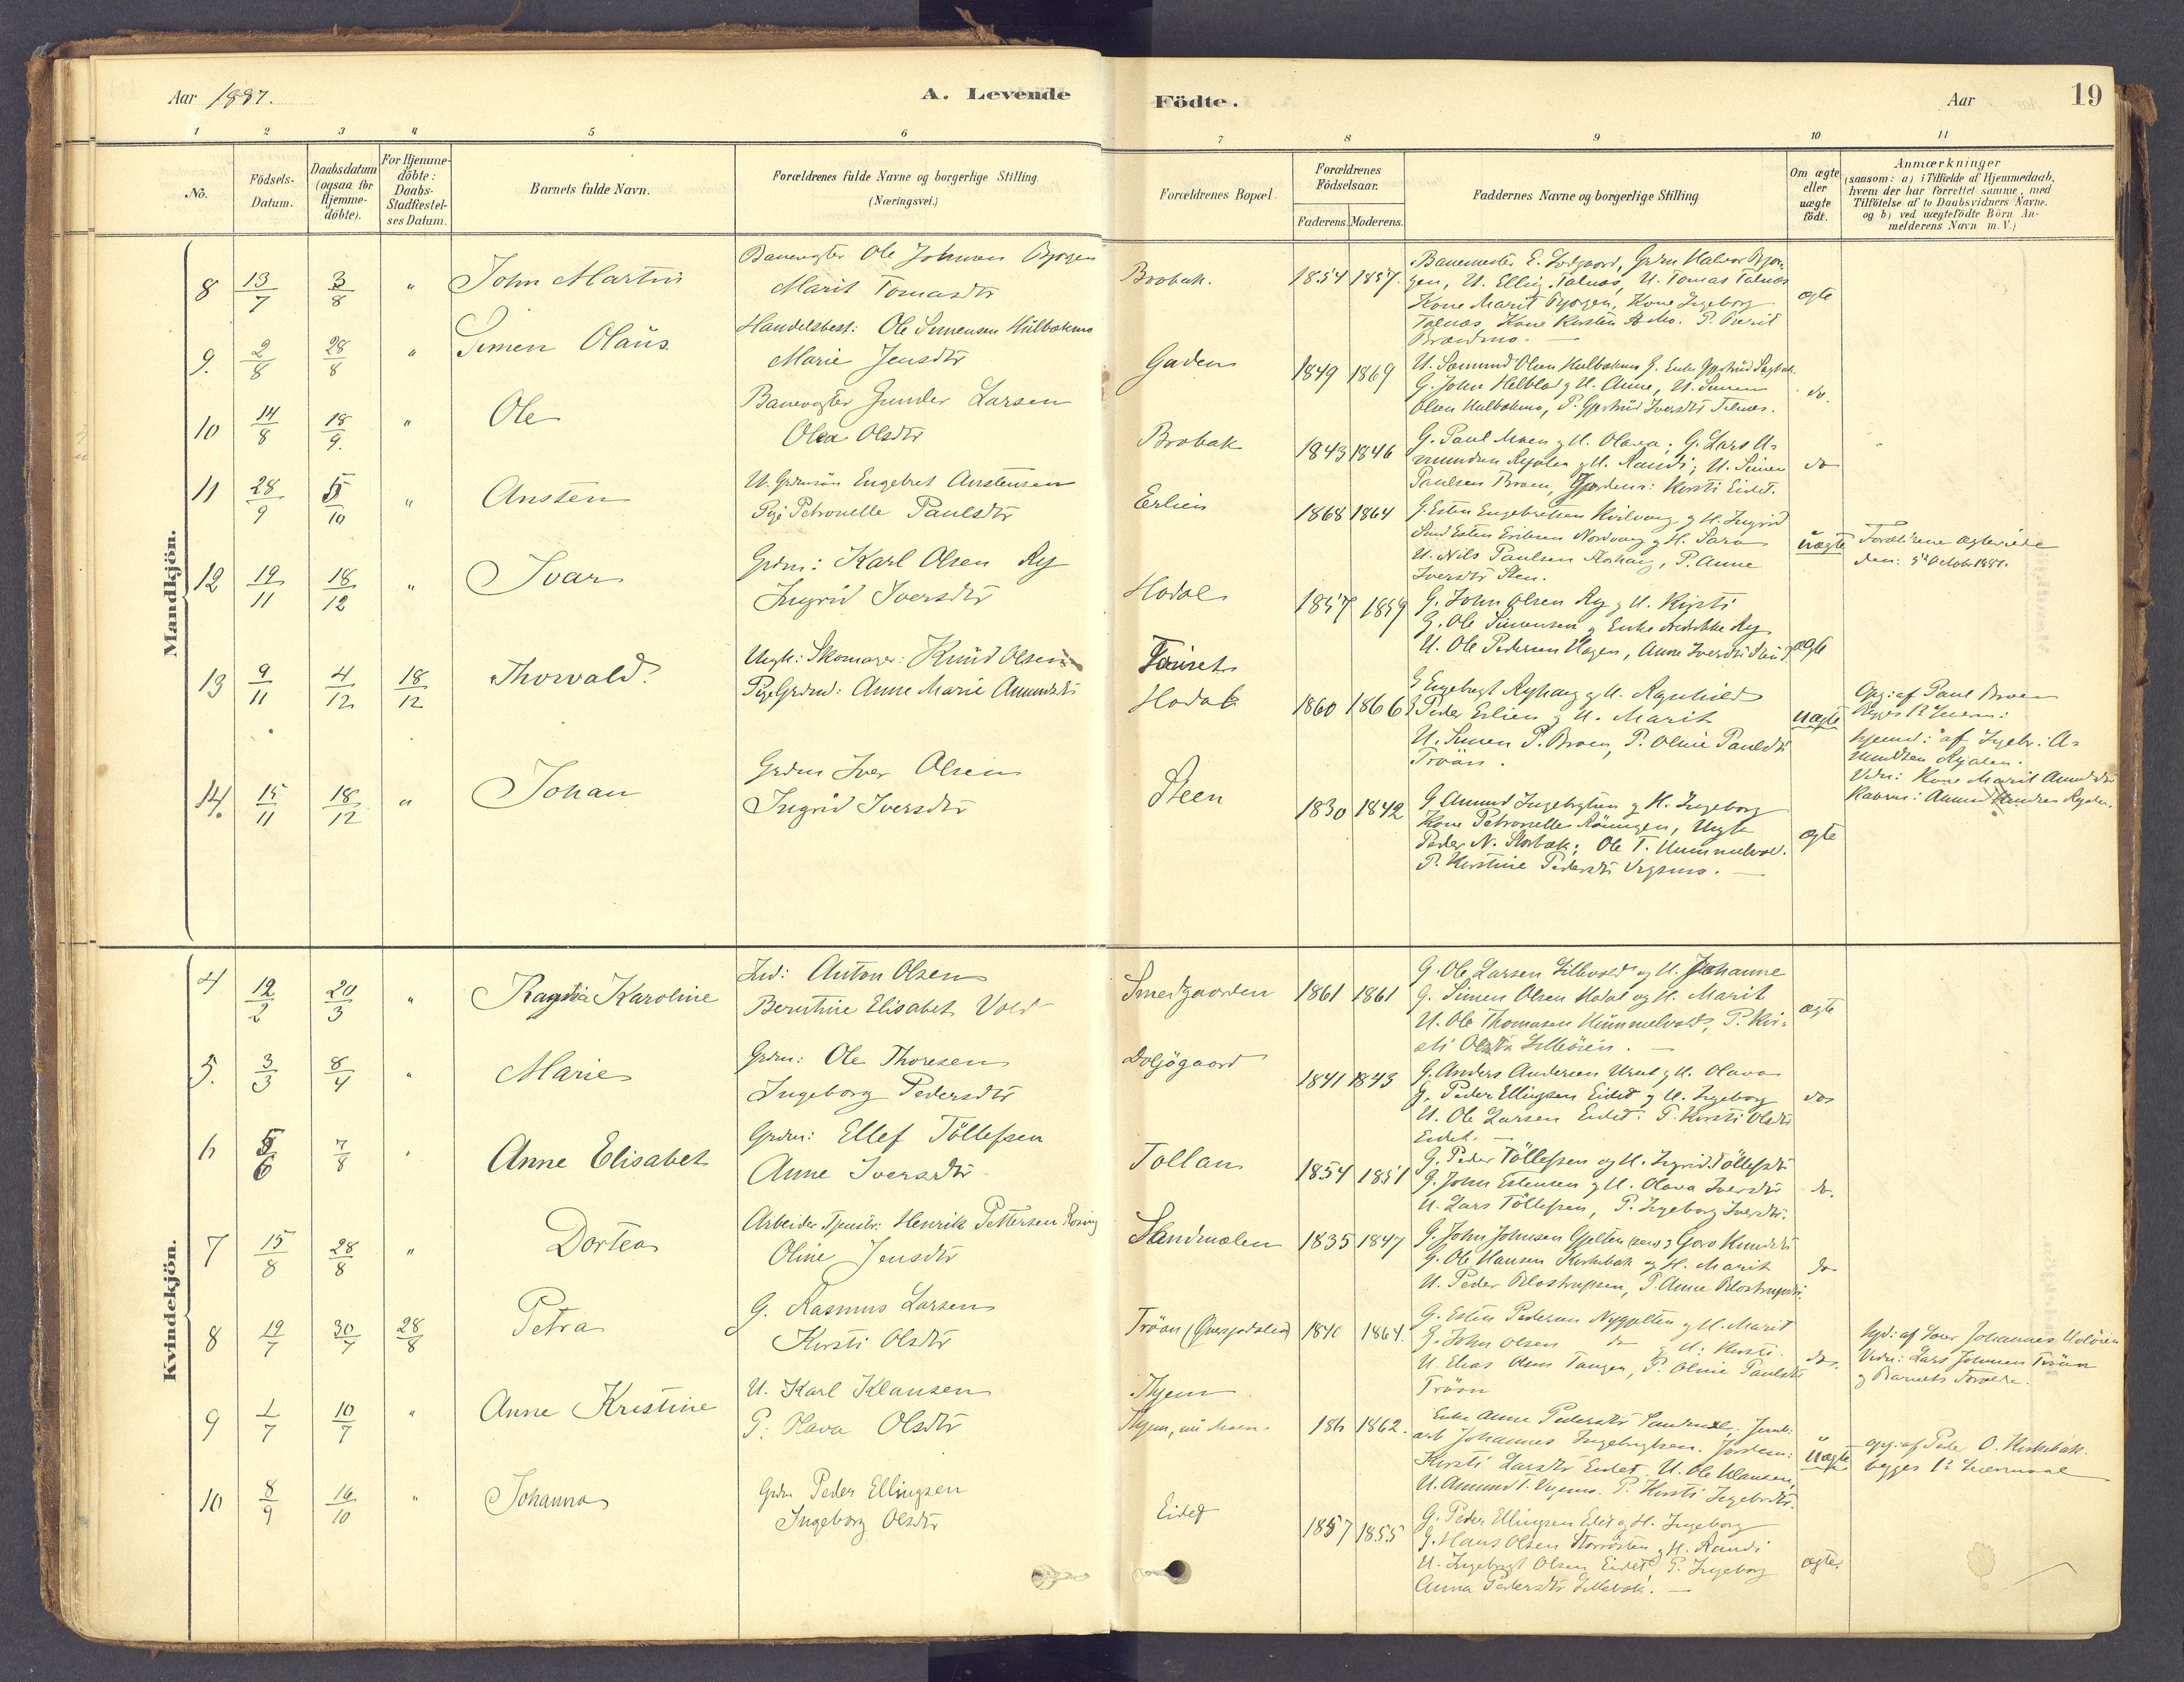 Aar 1887.
A. Levende
Födte.
Aar
19
1 2 3 4 5 6 7 8 9 10 11
No.
Födsels-
Datum.
Daabsdatum
(ogsaa for
Hjemme-
döbte).
For Hjemme-
döbte:
Daabs-
Stadfæstel-
ses Datum.
Barnets fulde Navn.
Forældrenes fulde Navne og borgerlige Stilling.
(Næringsvei.)
Forældrenes Bopæl.
Forældrenes
Födselsaar.
Faderens. Moderens.
Faddernes Navne og borgerlige Stilling
Om ægte
eller
uægte
födt.
Anmærkninger
(saasom: a) i Tilfælde af Hjemmedaab,
hvem der har forrettet samme, med
Tilföielse af to Daabsvidners Navne.
og b) ved uægtefödte Börn An-
melderens Navn m. V.)
Mandkjön.
8 13/7 3/8 " John Martin
Banevogter Ole Johnsen
Marit Tomasdtr
Brobak. 1854 1857.
Kone Marit Kone Ingeborg
Tolnæs, Kone Kirsten
ægte
9. 2/8 28/8 " Simen Olaus
Handelsbest: Ole Simensen Hulbækmo
Marie Jensdtr
Gaden 1849 1869
Olsen Hulbækmo, P. Gjertrud Iversdtr Tolnæs.
do.
10 14/8 18/9. " Ole
Banevogter Gunder Larsen
Olea Olsdtr
Brobak 1843 1846
G. Paul Moen og H. Olava; G. Lars A-
mundsen Ryalen og H. Randi; U. Simen
Paulsen Broen, Kirsti Eidet.
do
11 28/9 5/10 " Ansten
U. Grdmsön Engebret Anstensen
Pige Petronelle Paulsdtr
Erlien 1868 1864
G. Esten Engebretsen Kvilvang og H. Ingrid
Esten Eriksen Nordvang og H. Sara
U. Nils Paulsen P. Anne
Iversdtr Sten.
uægte
Forældrene ægteviede
den: 5te Octob 1887.
12 19/11 18/12 " Ivar
Grdm: Karl Olsen Ry
Ingrid Iversdtr
Hodal 1857 1859
G. John Olsen Ry og H. Kirsti
G. Ole Simensen og Enke Ry
U. Ole Pedersen Hagen, Anne Iversdtr
ægte
13 9/11 4/12 18/12 Thorvald
Ungk: Skomager: Knud Olsen
Pige Grdmd: Anne Marie Amundsdtr
Tönset
Hodal 1860 1866
G Engebregt Ryhaug og H. Ragnhild
G Peder Erlien og H. Marit
U. Simen P. Broen, P. Oline Paulsdtr
Tröan.
uægte
Opg: af Paul Broen
Begges 1ste
hjemd: af Ingebr: A-
mundsen Ryalen.
Vidn: Kone Marit Amundsdtr
14. 15/11 18/12 " Johan
Grdm Iver Olsen
Ingrid Iversdtr
Steen 1830 1842
G Amund Ingebrigtsen og H. Ingeborg
Kone Petronelle Röningen, Ungk
Peder N. Ole T. Hummelvol.
P. Kirstine Pedersdtr Vegsmo. —
ægte
Kvindekjön.
4 12/2 20/3 " Karoline
Ind: Anton Olsen
Berntine Elisabet Vold
Smedgaarden 1861 1861
G. Ole Larsen Lillevold og H. Johanne
G. Simen Olsen Hodal og H. Marit
U. Ole Thomasen Hummelvold, P. Kir-
sti Olsdtr Lilleöien. —
ægte
5. 3/3 8/4 " Marie
Grdm: Ole Thoresen
Ingeborg Pedersdtr
Doljögaard 1841 1843
G. Anders Andersen og H. Olava
G. Peder Ellingsen Eidet og H. Ingeborg
U. Ole Larsen Eidet: P. Kirsti Olsdtr
Eidet. —
do
6 5/6 7/8 " Anne Elisabet
Grdm: Ellef Töllefsen
Anne Iversdtr
Tollan 1854 1851
G. Peder Töllefsen og H. Ingrid Töllefsdtr
G. John Estensen og H. Olava Iversdtr
U. Lars Töllefsen, P. Ingeborg Iversdtr.
do.
7 15/8 28/8 " Dortea
Arbeider Henrik Pettersen
Oline Jensdtr
Sandmælen 1835 1847
G. John Johnsen Gjelten og Goro Knudsdtr
G. Ole Hansen Kirkebak og H. Marit
U. Peder P. Anne
do
8 19/7 30/7 28/8 Petra
G. Rasmus Larsen
Kirsti Olsdtr
Tröan 1840 1864.
G. Esten Pedersen Nygjelten og H. Marit
G. John Olsen do og H: Kirsti.
U. Elias Olsen Tangen, P. Oline Paulsdtr
Tröan
do.
Hjd: af Johannes
Vidn: Lars Johnsen Tröan
og Barnets
9 1/7 10/7 " Anne Kristine
U. Karl Klausen
P. Olava Olsdtr
186 1862.
Enke Anne Pedersdtr
Johannes Ingebrigtsen.
Kirsti Larsdtr Eidet. U. Ole Klausen,
U. Amund T. P. Kirsti Ingebrdtr.
uægte
opg: af Peder O. Kirkebak.
begges 1ste Leiermaal
10 8/9 16/10 " Johanna
Grdm Peder Ellingsen
Ingeborg Olsdtr
Eidet 1857 1855
G. Peder Ellingsen Eidet og H. Ingeborg
G. Hans Olsen og H. Randi
U. Ingebrigt Olsen Eidet, P. Ingeborg
Anna Pedersdtr Lillebæk. —
ægte.